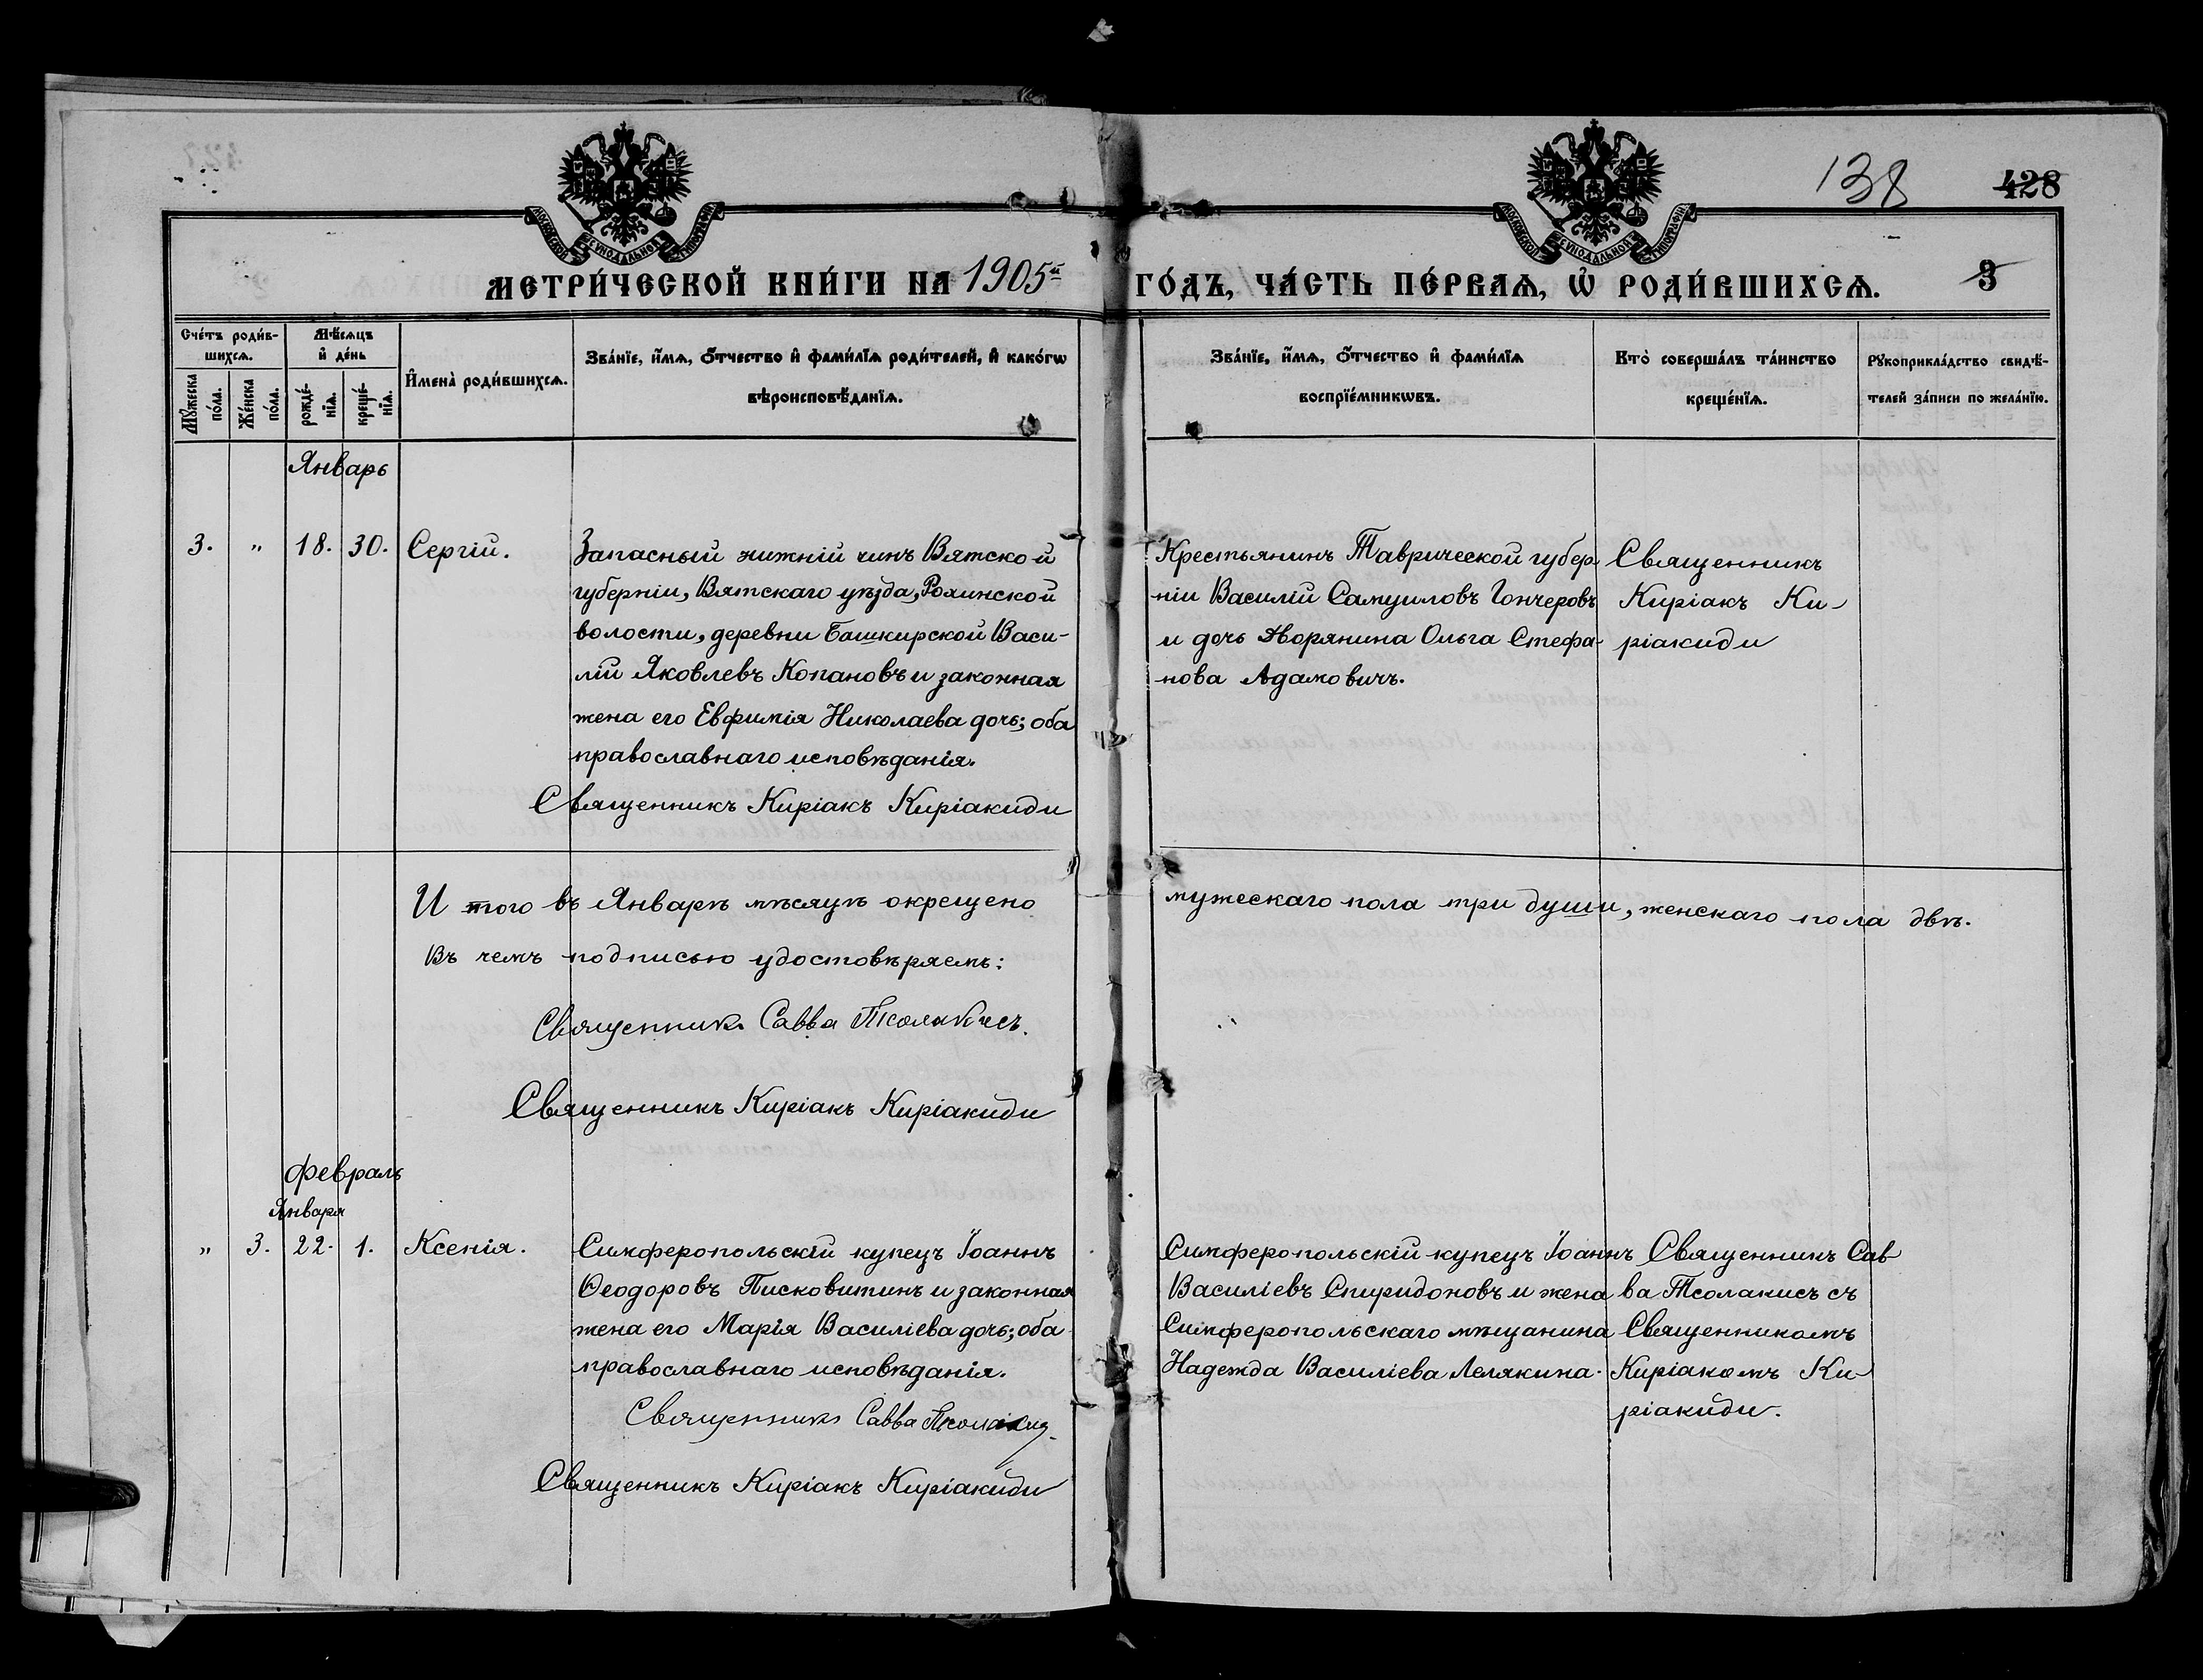 138
428
МОСКОВСКОЙ СѴНОДАЛЬНОЙ ТИПОГРАФІИ
МОСКОВСКОЙ СѴНОДАЛЬНОЙ ТИПОГРАФІИ
МЕТРИ́ЧЕСКОЙ КНИ́ГИ НА 1905й ГО́ДЪ, ЧА́СТЬ ПЕ́РВАѦ, Ѡ҆ РОДИ́ВШИХСѦ.
3
Сче́тъ роди́в-
шихсѧ.
Мꙋ́жеска
по́ла.
Же́нска
по́ла.
Мѣ́сѧцъ
и҆ де́нь
рожде́-
нїѧ.
креще́-
нїѧ.
И҆мена̀ роди́вшихсѧ.
Зва́нїе, и҆́мѧ, ѻ҆́тчество и҆ фами́лїѧ роди́телей, и҆ како́гѡ
вѣроисповѣ́данїѧ.
Зва́нїе, и҆́мѧ, ѻ҆́тчество и҆ фами́лїѧ
воспрїе́мникѡвъ.
Кто̀ соверша́лъ та́инство
креще́нїѧ.
Рꙋкоприкла́дство свидѣ́-
телей за́писи по жела́нїю.
Январь
3. " 18. 30. Сергій.
Запасный нижній чинъ Вятской
губерніи, Вятскаго уѣзда, Рохинской
волости, деревни Башкирской Васи-
лій Яковлевъ Копановъ и законная
жена его Евфимія Николаева дочь; оба
православнаго исповѣданія.
Священникъ Киріакъ Киріакиди
Крестьянинъ Таврической губер-
ніи Василій Самуиловъ Гончеровъ
и дочь Дворянина Ольга Стефа-
нова Адамовичъ.
Священникъ
Киріакъ Ки-
ріакиди
И того въ Январѣ мѣсяцѣ окрещено мужескаго пола три души, женскаго пола двѣ.
Въ чемъ подписью удостовѣряемъ:
Священникъ Савва Тсолакисъ.
Священникъ Киріакъ Киріакиди
Февраль
Января
" 3. 22. 1. Ксенія.
Симферопольскій купецъ Іоаннъ
Ѳеодоровъ Писковитинъ и законная
жена его Марія Василіева дочь; оба
православнаго исповѣданія.
Священникъ Савва Тсолакисъ
Священникъ Киріакъ Киріакиди
Симферопольскій купецъ Іоаннъ
Василіевъ Спиридоновъ и жена
Симферопольскаго мѣщанина
Надежда Василіева Лелякина.
Священникъ Сав
ва Тсолакисъ съ
Священникомъ
Киріакомъ Ки-
ріакиди.